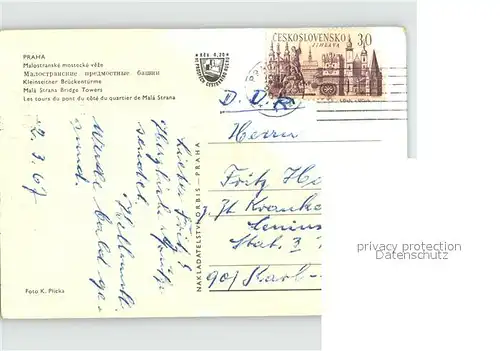 PRAHA
Malostranské mostecké věže
Малостранские предмостные башни
Kleinseitner Brückentürme
Malá Strana Bridge Towers
Les tours du pont du côté du quartier de Malá Strana
Kčs 0,20
ČESKOSLOVENSKO
JIHLAVA
30
D. D. R.
Herrn
Fritz He
Stat. 3
90 Karl-
2.3.67
Lieber Fritz!
Grüße
sendet
Hellmuth.
Werde bald ge-
sund.
NAKLADATELSTVÍ ORBIS – PRAHA
Foto K. Plicka
privacy protection
Datenschutz